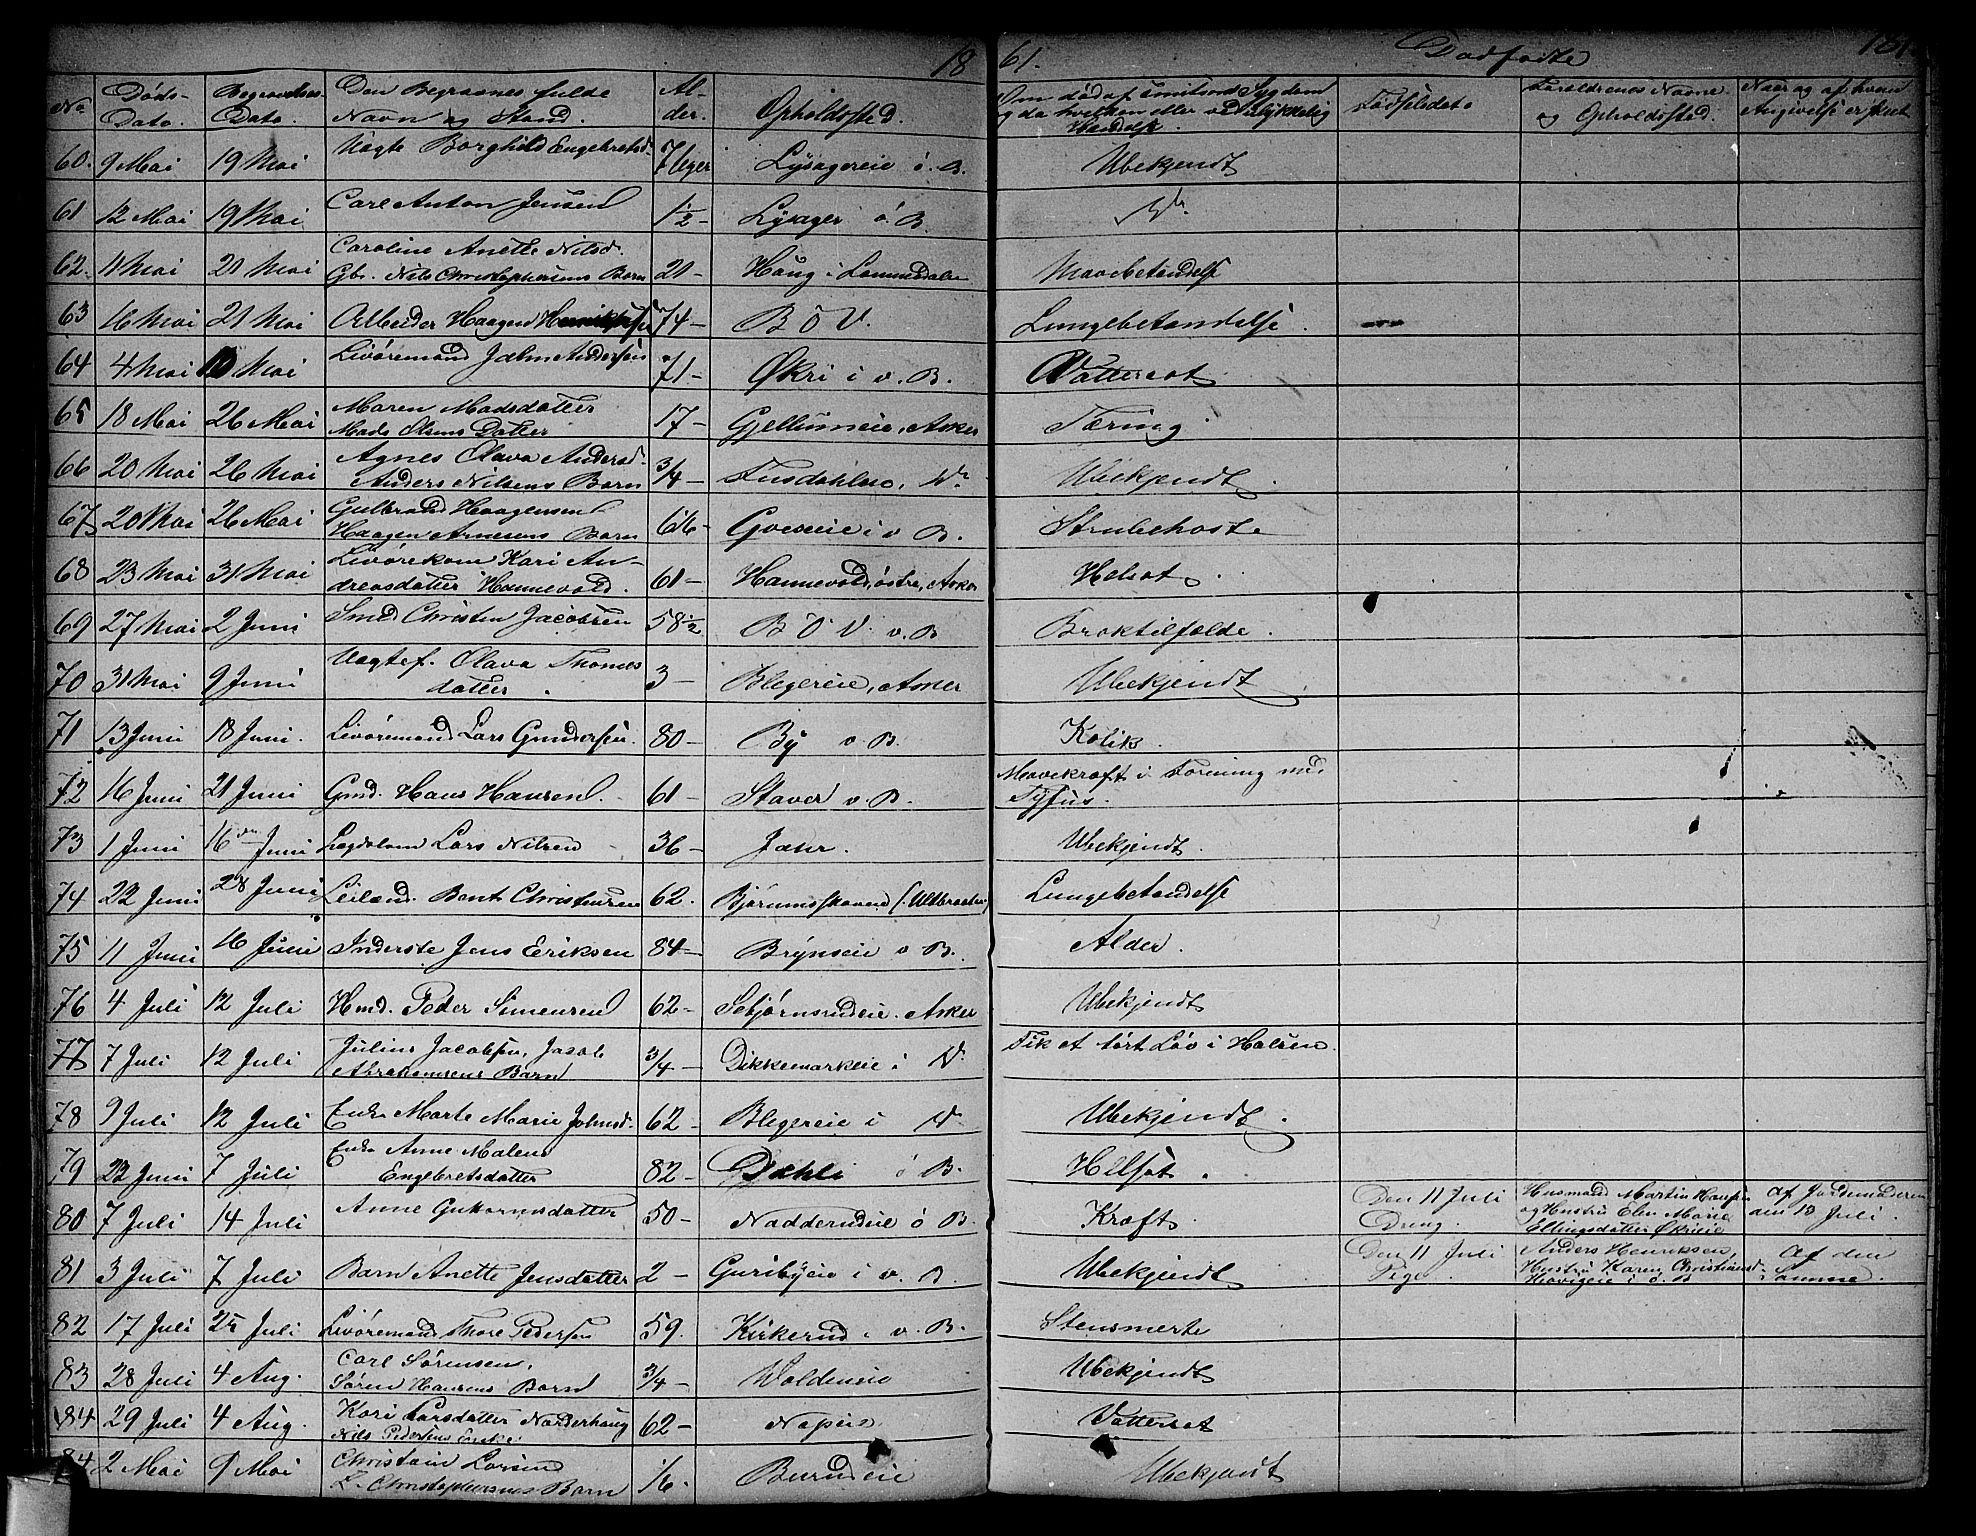 1861. Dødfødte 181
No Døds-Dato. Begravelses-Dato. Den Begravnes fulde Navn og Stand. Al-der. Opholdssted. Om død af smitsom Sygdom og da hvilken eller ved ulykkelig Hændelse. Fødselsdato Forældrenes Navne og Opholdssted. Naar og af hvem Angivelse er skeet
60. 9 Mai 19 Mai Borghild Engebretsd. 7 Uger Lysagereie ö. B. Ubekjendt
61 12 Mai 19 Mai Carl Anton Jensen 1½ - Lysager ö. B. Do
62. 11 Mai 21 Mai Caroline Anette Nilsd.
Gbr. Nils Christophersens Barn 21 - Haug i Lommedalen Mavebetændelse
63 16 Mai 21 Mai Arbeider Haagen 74 - B Ö V. Lungebetændelse.
64 4 Mai Mai Livöremand Johan Andersen 71. - Økri i v. B. Vattersot.
65 18 Mai 26 Mai Maren Madsdatter
Mads Olsens Datter 17 - Gjellumeie, Asker Tæring
66 20 Mai 26 Mai Agnes Olava Andersd.
Anders Nilsens Barn 3/4 - Do Ubekjendt.
67 20 Mai 26 Mai Gulbrand Haagensen
Haagen Arnesens Barn i v B. Strubehoste
68 23 Mai 31 Mai Livörekone Kari An-
dreasdatter Hannevold. 61 - Hannevold, östre, Asker Helsot.
69 27 Mai 2 Juni Smed Christen Jacobsen 58½ B Ö V. v. B Brøktilfælde.
70 31 Mai 9 Juni Olava Thomes
datter. 3 - Blegereie, Asker Ubekjendt.
71 13 Juni 18 Juni. Livöremand Lars Gundersen. 80 - By v. B. Kolik.
72 16 Juni 21 Juni Gmd. Hans Hansen. 61 - Staver v. B. Mavekræft i Forening med
Tyfus.
73 1 Juni 16 Juni Lægdslem Lars Nilsen 36 - Jahr. Ubekjendt.
74 22 Juni 28 Juni Leilænd. Bent Christensen 62. Bjørumsskoven Lungebetændelse
75 11 Juni 16 Juni Inderste Jens Eriksen 84 - Brynseie v B. Alder.
76 4 Juli 12 Juli Hmd. Peder Simensen 62 - Sebjørnsrudeie. Asker Ubekjendt
77 7 Juli 12 Juli Julius Jacobsen, Jacob
Abrahamsens Barn 3/4 - Dikkemarkeie i Do Fik et tørt Løv i Halsen.
78 9 Juli 12 Juli Enke Marte Marie Johnsd. 62 - Blegereie i Do Ubekjendt.
79 22 Juni 7 Juli Enke Anne Malene
Engebretsdatter 82 - Dæhli ö B. Helsot.
80 7 Juli 14 Juli Anne Guttormsdatter 50 - Nadderudeie ö B. Kræft. Den 11 Juli
Dreng. Husmand Martin Hansen
og Hustru Elen Marie
Ellingsdatter Økrieie af Jordemoderen
den 18 Juli.
81 3 Juli 7 Juli Barn Anette Jensdatter 2 - Guribyeie i v. B. Ubekjendt. Den 11 Juli
Pige. Anders Henriksen,
Hustru Karen Christiansd.
Høvigeie i ö. B Af den
Samme.
82 17 Juli Juli Livöremand Thore Pedersen 59. Kirkerud i v. B. Stensmerte
83 28 Juli 4 Aug. Carl Sørensen.
Søren Hansens Barn 3/4 - Ubekjendt.
84 29 Juli 4 Aug. Kari Larsdatter Nordenhaug
Nils Pedersens Enke. 62 - Vattersot
84 2 Mai 9 Mai Christian Larsen
L. Christophersens Barn 1/6. Burudeie Ubekjendt